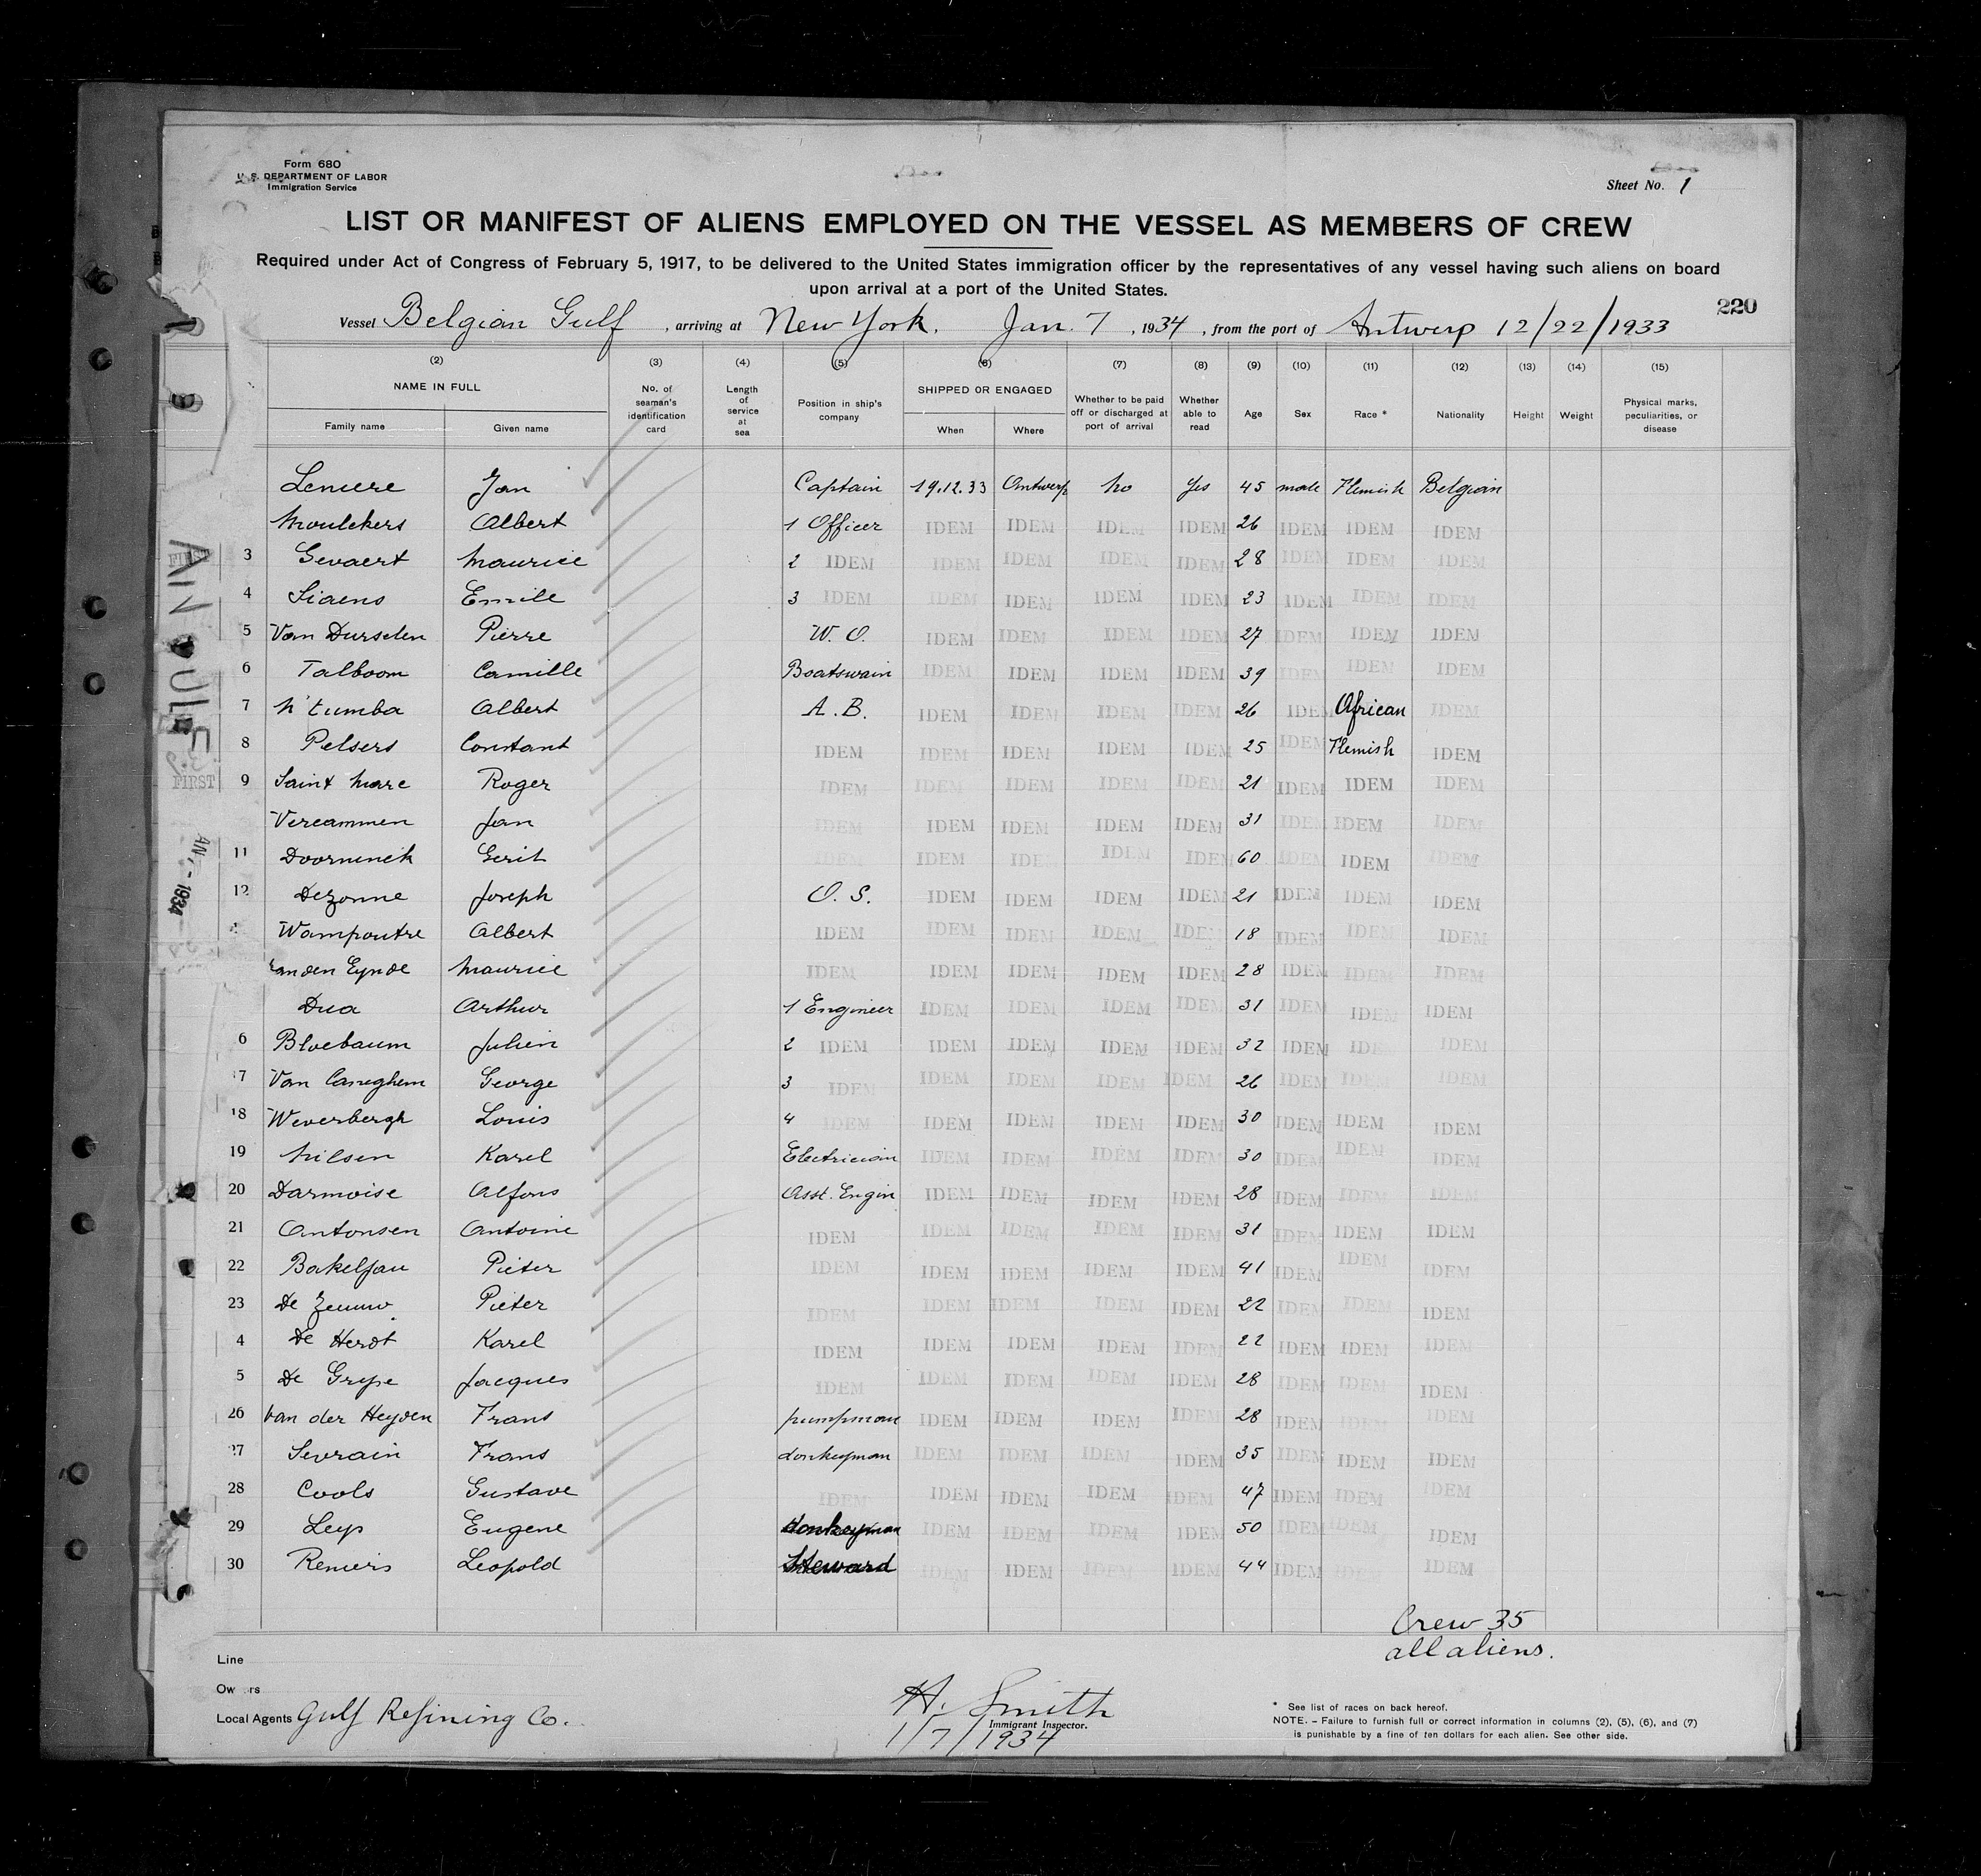 Form 680
U. S. DEPARTMENT OF LABOR
Immigration Service
Sheet No. 1
LIST OR MANIFEST OF ALIENS EMPLOYED ON THE VESSEL AS MEMBERS OF CREW
Required under Act of Congress of February 5, 1917, to be delivered to the United States immigration officer by the representatives of any vessel having such aliens on board
upon arrival at a port of the United States.
220
Vessel Belgian Gulf, arriving at New York. Jan. 7, 1934, from the port of Antwerp 12/22/1933
(2) (3) (4) (5) (6) (7) (8) (9) (10) (11) (12) (13) (14) (15)
NAME IN FULL Family name Given name No. of seaman's identification card Length of service at sea Position in ship's company SHIPPED OR ENGAGED When Where Whether to be paid off or discharged at port of arrival Whether able to read Age Sex Race * Nationality Height Weight Physical marks, peculiarities, or disease
Jan Captain 19.12.33 Antwerp No Yes 45 male Flemish Belgian
Moulckers Albert 1 Officer IDEM IDEM IDEM IDEM 26 IDEM IDEM IDEM
3 Gevaert Maurice 2 IDEM IDEM IDEM IDEM IDEM 28 IDEM IDEM IDEM
4 Siaens Emile 3 IDEM IDEM IDEM IDEM IDEM 23 IDEM IDEM IDEM
5 Van Durselen Pierre W. O. IDEM IDEM IDEM IDEM 27 IDEM IDEM IDEM
6 Talboom Camille Boatswain IDEM IDEM IDEM IDEM 39 IDEM IDEM IDEM
7 N'tumba Albert A. B. IDEM IDEM IDEM IDEM 26 IDEM African IDEM
8 Pelsers Constant IDEM IDEM IDEM IDEM IDEM 25 IDEM Flemish IDEM
9 Saint Marc Roger IDEM IDEM IDEM IDEM IDEM 21 IDEM IDEM IDEM
Vercammen Jan IDEM IDEM IDEM IDEM IDEM 31 IDEM IDEM IDEM
11 Doorninck Gerit IDEM IDEM IDEM IDEM IDEM 60 IDEM IDEM IDEM
12 Dezonne Joseph O. S. IDEM IDEM IDEM IDEM 21 IDEM IDEM IDEM
Wampoutre Albert IDEM IDEM IDEM IDEM IDEM 18 IDEM IDEM IDEM
Van den Eynde Maurice IDEM IDEM IDEM IDEM IDEM 28 IDEM IDEM IDEM
Dua Arthur 1 Engineer IDEM IDEM IDEM IDEM 31 IDEM IDEM IDEM
6 Bloebaum Julien 2 IDEM IDEM IDEM IDEM IDEM 32 IDEM IDEM IDEM
17 Van Caneghem George 3 IDEM IDEM IDEM IDEM IDEM 26 IDEM IDEM IDEM
18 Weverbergh Louis 4 IDEM IDEM IDEM IDEM IDEM 30 IDEM IDEM IDEM
19 Nilsen Karel Electrician IDEM IDEM IDEM IDEM 30 IDEM IDEM IDEM
20 Darmoise Alfons Asst. Engin IDEM IDEM IDEM IDEM 28 IDEM IDEM IDEM
21 Antonsen Antoine IDEM IDEM IDEM IDEM IDEM 31 IDEM IDEM IDEM
22 Bakeljau Pieter IDEM IDEM IDEM IDEM IDEM 41 IDEM IDEM IDEM
23 De Zeeuw Pieter IDEM IDEM IDEM IDEM IDEM 22 IDEM IDEM IDEM
4 De Herdt Karel IDEM IDEM IDEM IDEM IDEM 22 IDEM IDEM IDEM
5 De Gryse Jacques IDEM IDEM IDEM IDEM IDEM 28 IDEM IDEM IDEM
26 Van der Heyden Frans pumpman IDEM IDEM IDEM IDEM 28 IDEM IDEM IDEM
27 Sevrain Frans donkeyman IDEM IDEM IDEM IDEM 35 IDEM IDEM IDEM
28 Cools Gustave IDEM IDEM IDEM IDEM IDEM 47 IDEM IDEM IDEM
29 Leys Eugene donkeyman IDEM IDEM IDEM IDEM 50 IDEM IDEM IDEM
30 Reniers Leopold Steward IDEM IDEM IDEM IDEM 44 IDEM IDEM IDEM
Crew 35
all aliens.
Line
Ow rs
Local Agents Gulf Refining Co.
H. Smith
Immigrant Inspector.
1/7/1934
* See list of races on back hereof.
NOTE. – Failure to furnish full or correct information in columns (2), (5), (6), and (7)
is punishable by a fine of ten dollars for each alien. See other side.
FIRST
FIRST
AN, - 1934